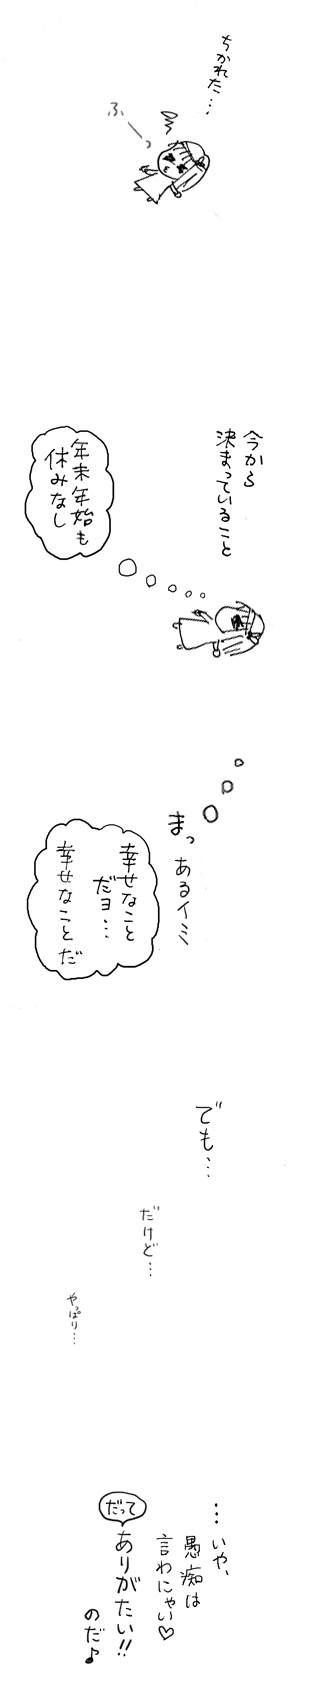 ちかれた…
ふ
今から
決まっていること
年末年始も
休みなし
まっ
あるイミ
幸せなこと
だヨ…
幸せなことだ
でも…
だけど…
やっぱり…
…いや、
愚痴は
言わにゃい♡
だって
ありがたい!!
のだ♪